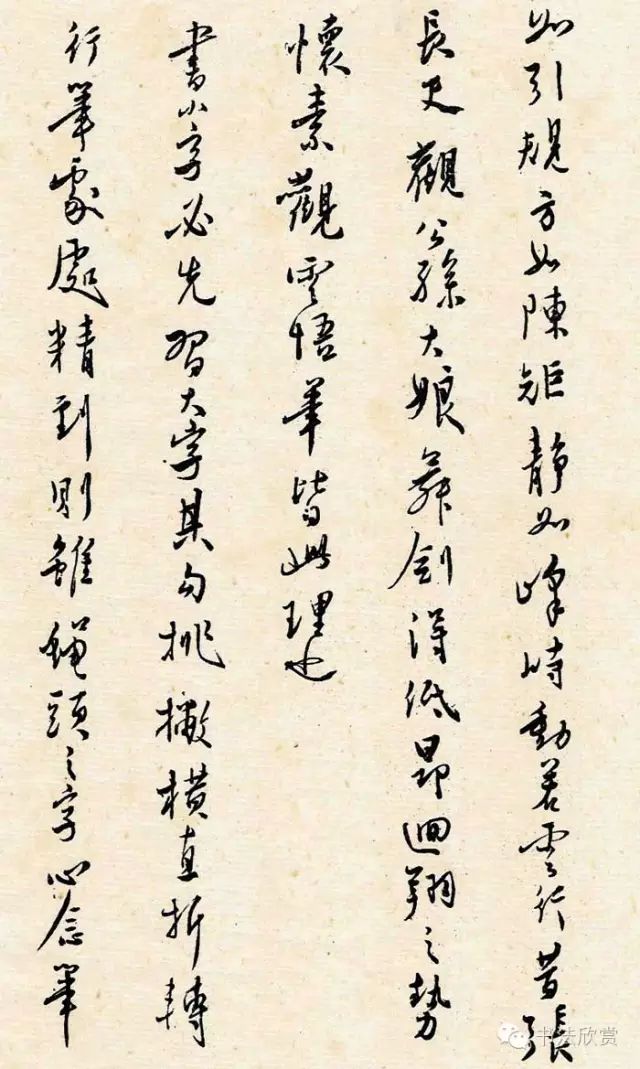 如引規方如陳矩靜如峰峙動若雲行昔張
長史觀公孫大娘舞劍得低昂迴翔之勢
懷素觀雲悟筆皆此理也
書小字必先習大字其勾挑撇橫直折轉
行筆處處精到則雖蠅頭之字心念筆
书法欣赏